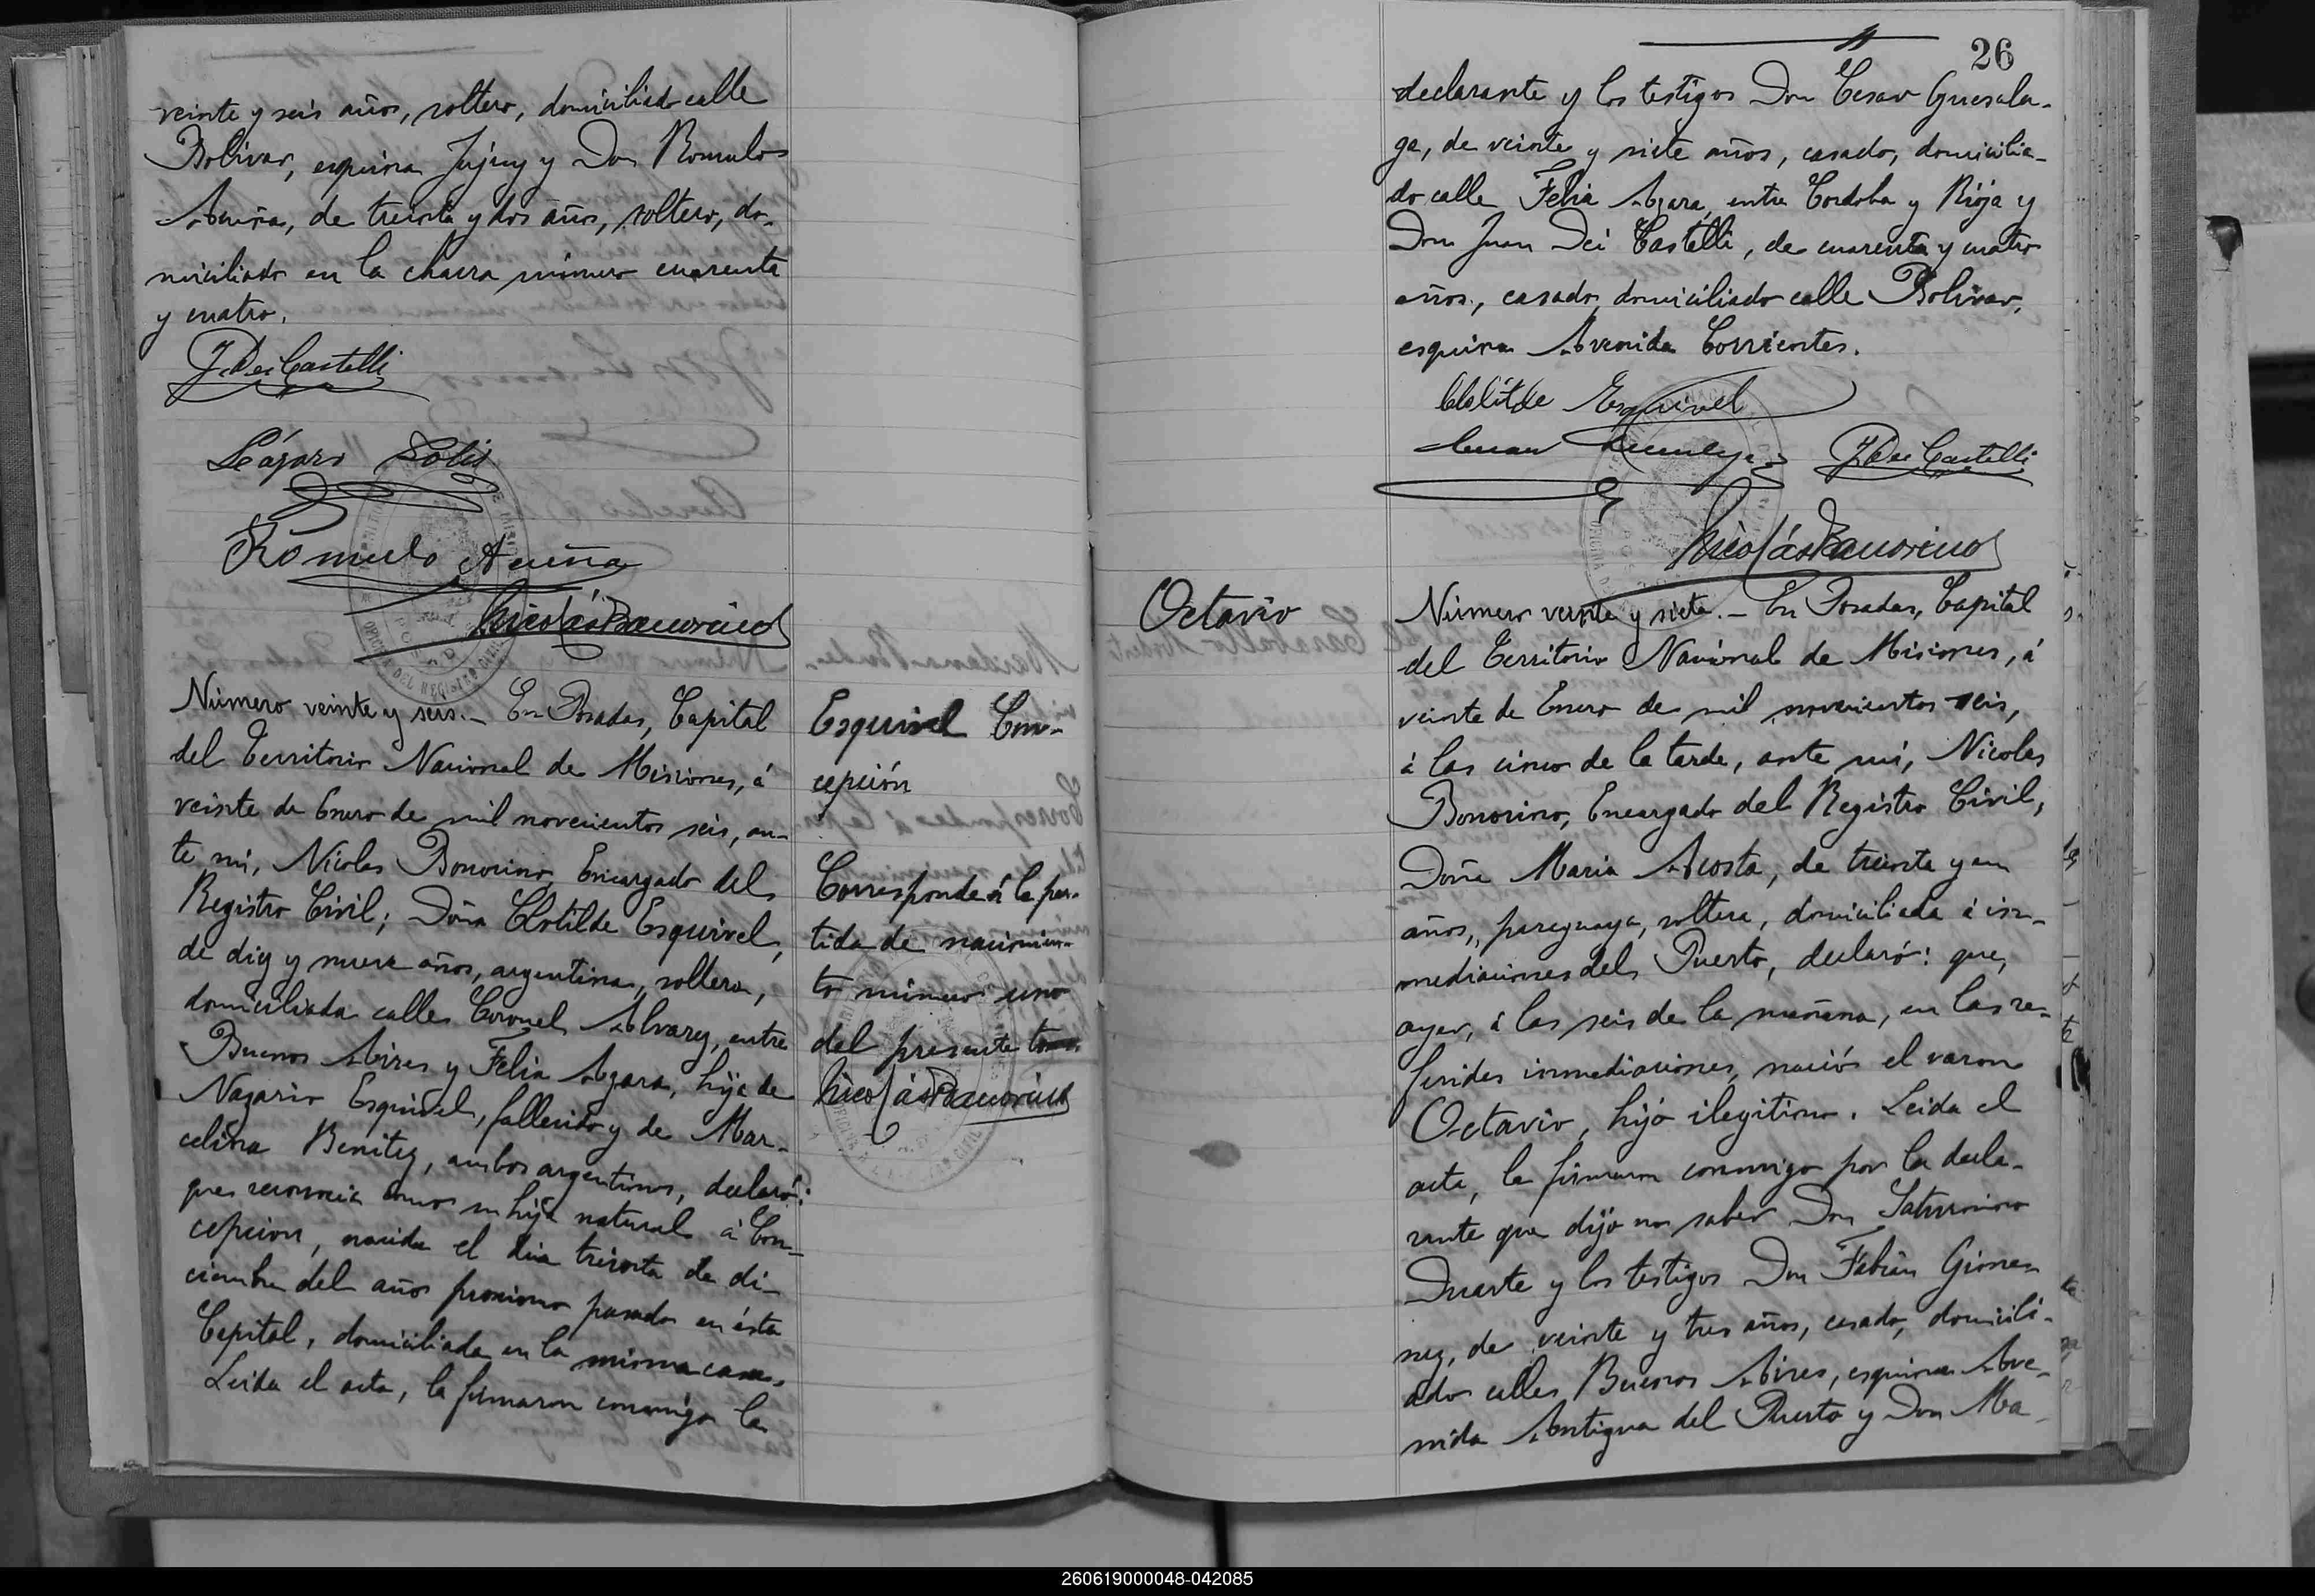 veinte y seis años, soltero, domiciliado calle
Bolivar, esquina Jujuy y Don Romulo
Acuña, de treinta y dos años, soltero, do-
miciliado en la chacra número cuarenta
y cuatro.
J. Dei Castelli
Lázaro Solis
Romulo Acuña
Nicolás Bonorino
Número veinte y seis.- En Posadas, Capital
del Territorio Nacional de Misiones, á
veinte de Enero de mil novecientos seis, an-
te mi, Nicolas Bonorino, Encargado del
Registro Civil; Doña Clotilde Esquivel,
de diez y nueve años, argentina, soltera,
domiciliada calle Coronel Alvarez, entre
Buenos Aires y Felix Azara, hija de
Nazario Esquivel, fallecido y de Mar-
celina Benitez, ambos argentinos, declaró:
que reconocia como su hija natural á Con-
cepcion, nacida el dia treinta de di-
ciembre del año proximo pasado en ésta
Capital, domiciliada en la misma casa.
Leida el acta, la firmaron conmigo la
Esquivel Con-
cepción
Corresponde á la par-
tida de nacimien-
to número uno
del presente tomo.
Nicolás Bonorino
26
declarante y los testigos Don Cesar Guesala-
ga, de veinte y siete años, casado, domicilia-
do calle Felix Azara, entre Cordoba y Rioja y
Don Juan Dei Castelli, de cuarenta y cuatro
años, casado, domiciliado calle Bolivar,
esquina Avenida Corrientes.
Clotilde Esquivel
J. Dei Castelli
Nicolás Bonorino
Octavio
Número veinte y siete.- En Posadas, Capital
del Territorio Nacional de Misiones, á
veinte de Enero de mil novecientos seis,
á las cinco de la tarde, ante mi, Nicolas
Bonorino, Encargado del Registro Civil,
Doña Maria Acosta, de treinta y un
años, paraguaya, soltera, domiciliada á in-
mediaciones del Puerto, declaró: que,
ayer, á las seis de la mañana, en las re-
feridas inmediaciones, nació el varon
Octavio, hijo ilegitimo. Leida el
acta, la firmaron conmigo por la decla-
rante que dijo no saber Don Saturnino
Duarte y los testigos Don Fabian Gimen-
nez, de veinte y tres años, casado, domicili-
ado calle Buenos Aires, esquina Ave-
nida Antigua del Puerto y Don Ma-
260619000048-042085